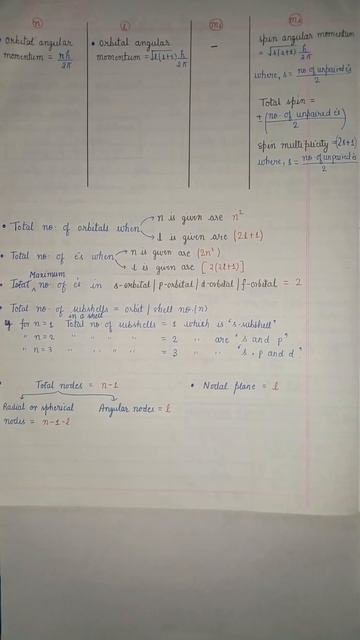 n
• orbital angular
momentum = nh/2π
l
• orbital angular
momentum = √l(l+1) h/2π
ml
—
ms
spin angular momentum
= √s(s+1) h/2π
where, s = no. of unpaired e's/2
Total spin =
± (no. of unpaired e's/2)
spin multiplicity = (2s+1)
where, s = no. of unpaired e's/2
• Total no. of orbitals when
n is given are n²
l is given are (2l+1)
• Total no. of e's when
n is given are (2n²)
l is given are [2(2l+1)]
Maximum
• Total no. of e's in s-orbital | p-orbital | d-orbital | f-orbital = 2
• Total no. of subshells in a shell = orbit / shell no. (n)
eg for n=1 Total no. of subshells = 1 which is "s-subshell"
" n=2 " " " " = 2 " are "s and p"
" n=3 " " " " = 3 " " "s, p and d"
• Total nodes = n-1
Radial or spherical
nodes = n-1-l
Angular nodes = l
• Nodal plane = l